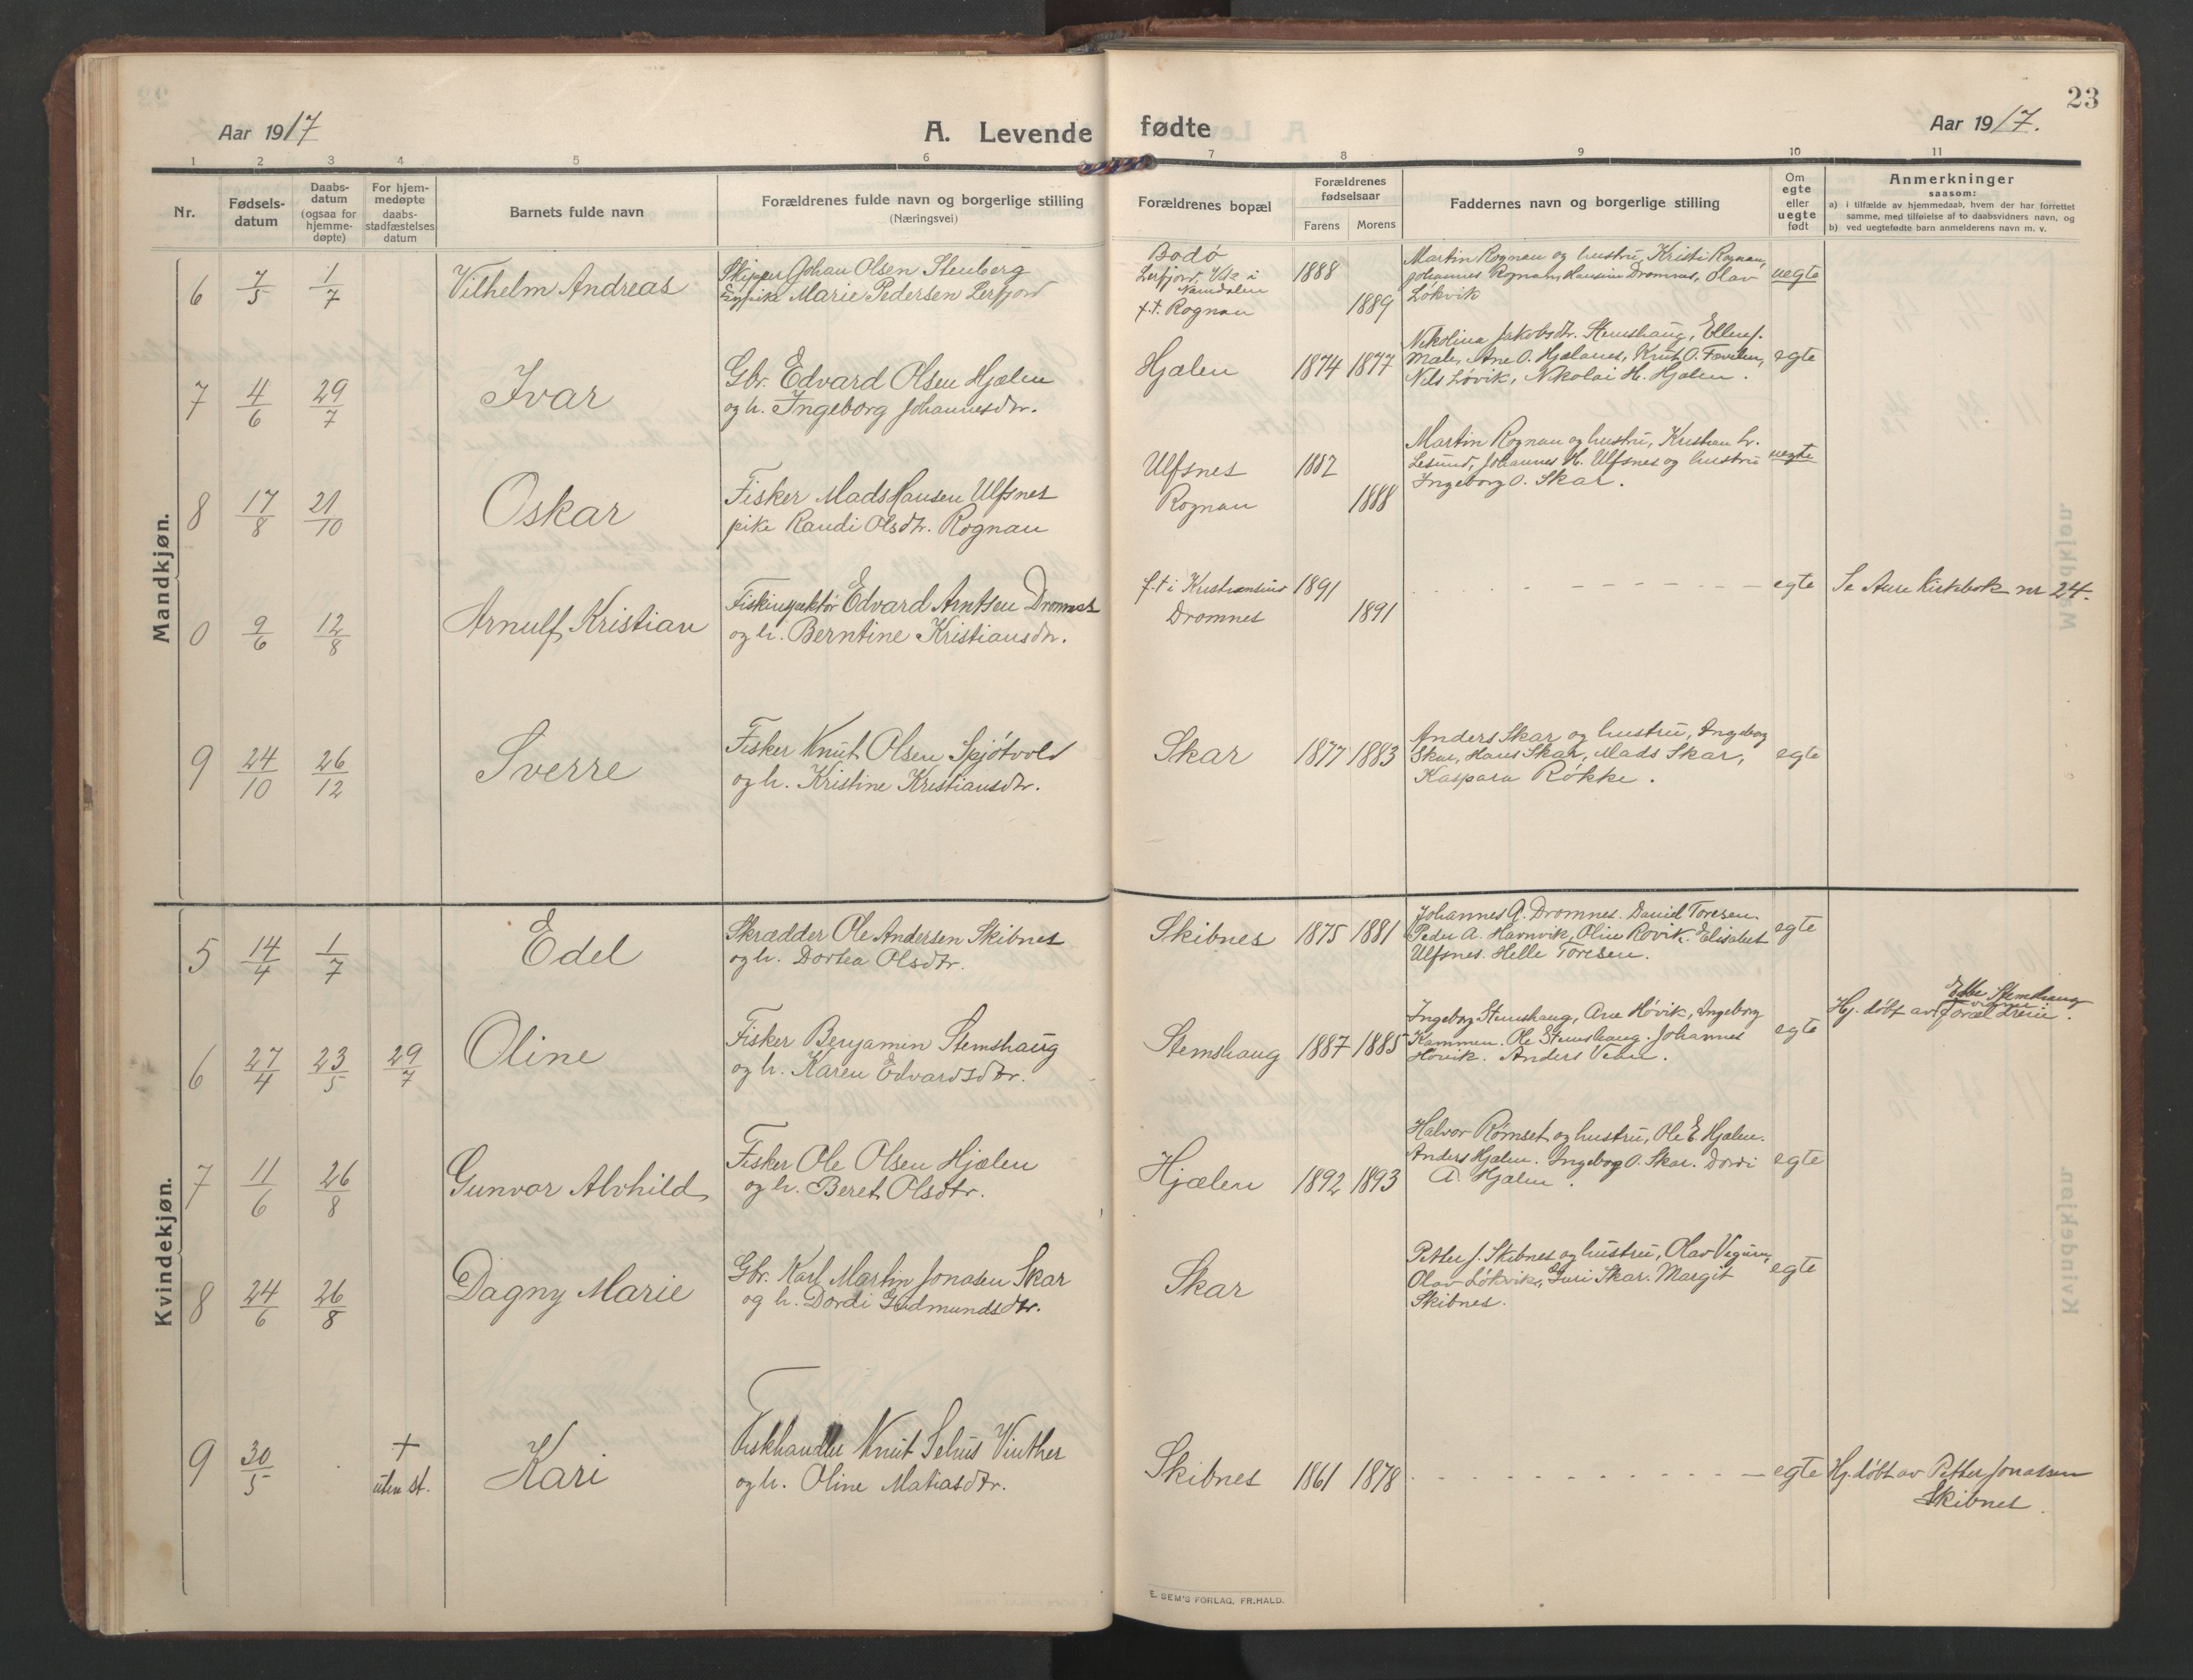 23
Aar 1917
A. Levende fødte
Aar 1917.
1 2 3 4 5 6 7 8 9 10 11
Nr.
Fødsels-
datum
Daabs-
datum
(ogsaa for
hjemme-
døpte)
For hjem-
medøpte
daabs-
stadfæstelses
datum
Barnets fulde navn
Forældrenes fulde navn og borgerlige stilling
(Næringsvei)
Forældrenes bopæl
Forældrenes
fødselsaar
Farens Morens
Faddernes navn og borgerlige stilling
Om
egte
eller
uegte
født
Anmerkninger
saasom:
a) i tilfælde av hjemmedaab, hvem der har forrettet
samme, med tilføielse af to daabsvidners navn, og
b) ved uegtefødte barn anmelderens navn m. v.
Mandkjøn.
6 7/5 1/7 Vilhelm Andreas
Skipper Johan Olsen Stenberg
pike Marie Pedersen Lerfjord
Bodö
Lerfjord, i
Namdalen
f.t. Rognan
1888
1889
Martin Rognan og hustru, Kristi Rognan,
Johannes Rognan, Hansine Dromnes, Olav
Løkvik
uegte
7 4/6 29/7 Ivar
Gbr. Edvard Olsen Hjælen
og h. Ingeborg Johannesdtr.
Hjælen 1874 1877
Nikolina Jakobsdtr. Stemshaug, Ellen J.
Mæle, Ane O. Hjælanes, Knut O.
Nils Løvik, Nikolai H. Hjælen.
egte
8 17/8 21/10 Oskar
Fisker Mads Hansen Ulfsnes
pike Randi Olsdtr. Rognan
Ulfsnes 1882
Rognan 1888
Martin Rognan og hustru, Kristian Lr.
Lesund, Johannes H. Ulfsnes og hustru
Ingeborg O. Skar.
uegte
0 9/6 12/8 Arnulf Kristian
Fiskinspektör Edvard Arntsen Dromnes
og h. Berntine Kristiansdtr.
f.t. i Kristiansund 1891
Dromnes 1891
egte
Se Aure Kirkebok nr 24.
9 24/10 26/12 Sverre
Fisker Knut Olsen Spjøtvold
og h. Kristine Kristiansdtr.
Skar 1877 1883
Anders Skar og hustru, Ingeborg
Skar, Hans Skar, Mads Skar,
Kaspara Røkke.
egte
Kvindekjøn.
5 14/4 1/7 Edel
Skrædder Ole Andersen Skibnes
og h. Dortea Olsdtr.
Skibnes 1875 1881
Johannes A. Dromnes. Daniel Toresen.
Peder A. Havnvik, Oline Rovik. Elisabet
Ulfsnes. Helle Toresen.
egte
6 27/4 23/5 29/7 Oline
Fisker Benjamin Stemshaug
og h. Karen Edvardsdtr.
Stemshaug 1887 1885
Ingeborg Stemshaug, Ane Hövik, Ingeborg
Kammen. Ole Stemshaug. Johannes
Hovik. Anders Vean.
egte
Ebbe Stemshaug
Hj. döbt av forældrene.
7 11/6 26/8 Gunvor Alvhild
Fisker Ole Olsen Hjælen
og h. Beret Olsdtr.
Hjælen 1892 1893
Halvor Rømset og hustru, Ole E. Hjælen.
Anders Hjælen. Ingeborg O. Skar. Dordi
A. Hjælen.
egte
8 24/6 26/8 Dagny Marie
Gbr. Karl Martin Jonasen Skar
og h. Dordi Gudmundsdtr.
Skar
Petter J. Skibnes og hustru, Olav
Olav Løkvik, Guri Skar. Margit
Skibnes.
egte
9 30/5 + uten st. Kari
Fiskhandler Knut Selius Vinther
og h. Oline Matiasdtr.
Skibnes 1861 1878
egte
Hj. döbt av Petter Jonassen
Skibnes.
E. SEM'S FORLAG, FR.HALD.